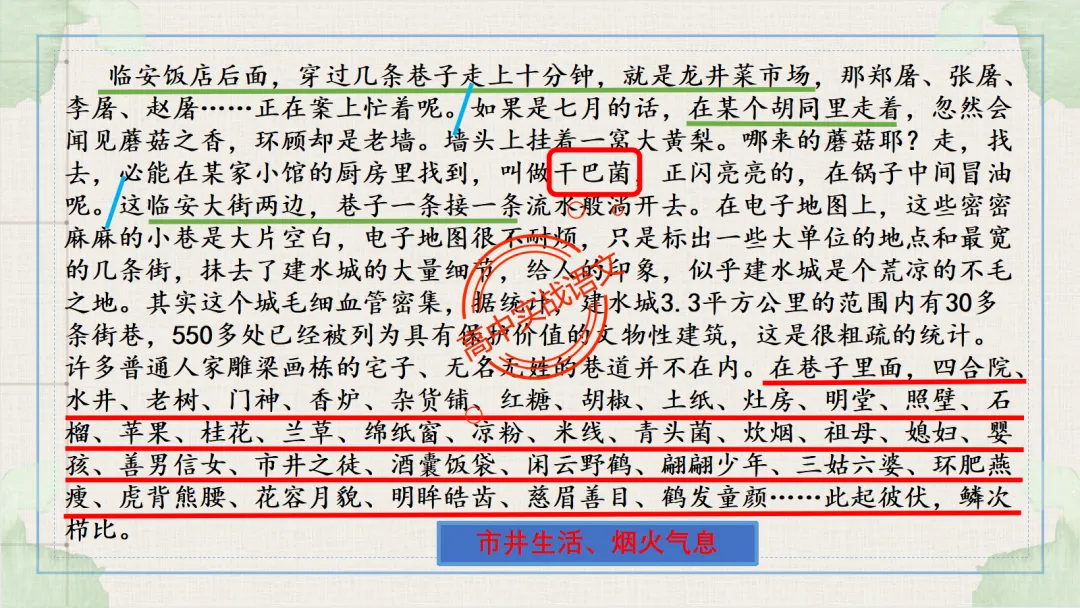 临安饭店后面，穿过几条巷子走上十分钟，就是龙井菜市场，那郑屠、张屠、
李屠、赵屠……正在案上忙着呢。如果是七月的话，在某个胡同里走着，忽然会
闻见蘑菇之香，环顾却是老墙。墙头上挂着一窝大黄梨。哪来的蘑菇耶？走，找
去，必能在某家小馆的厨房里找到，叫做干巴菌，正闪亮亮的，在锅子中间冒油
呢。这临安大街两边，巷子一条接一条流水般淌开去。在电子地图上，这些密密
麻麻的小巷是大片空白，电子地图很不耐烦，只是标出一些大单位的地点和最宽
的几条街，抹去了建水城的大量细节，给人的印象，似乎建水城是个荒凉的不毛
之地。其实这个城毛细血管密集，据统计，建水城3.3平方公里的范围内有30多
条街巷，550多处已经被列为具有保护价值的文物性建筑，这是很粗疏的统计。
许多普通人家雕梁画栋的宅子、无名无姓的巷道并不在内。在巷子里面，四合院、
水井、老树、门神、香炉、杂货铺、红糖、胡椒、土纸、灶房、明堂、照壁、石
榴、苹果、桂花、兰草、绵纸窗、凉粉、米线、青头菌、炊烟、祖母、媳妇、婴
孩、善男信女、市井之徒、酒囊饭袋、闲云野鹤、翩翩少年、三姑六婆、环肥燕
瘦、虎背熊腰、花容月貌、明眸皓齿、慈眉善目、鹤发童颜……此起彼伏，鳞次
栉比。
高中实战语文
市井生活、烟火气息